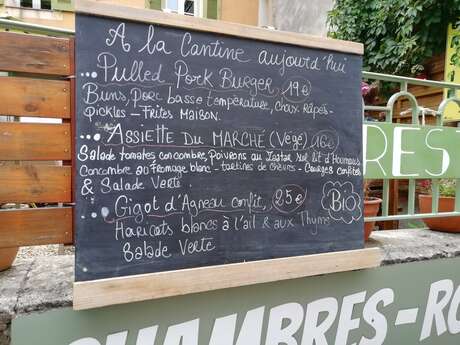 A la Cantine aujourd'hui
... Pulled Pork Burger 19€
Buns, Porc basse température, Choux Râpés -
Pickles - Frites Maison.
... Assiette du Marché (Végé) 16€
Salade tomates concombre, Poivrons au Zaatar sur lit d'Houmous
Concombre au fromage blanc - tartines de chèvres - Courges confites
& Salade Verte
... Gigot d'Agneau confit, 25€ Bio
Haricots blancs à l'ail & aux Thyms
Salade Verte
RES
CHAMBRES-RO